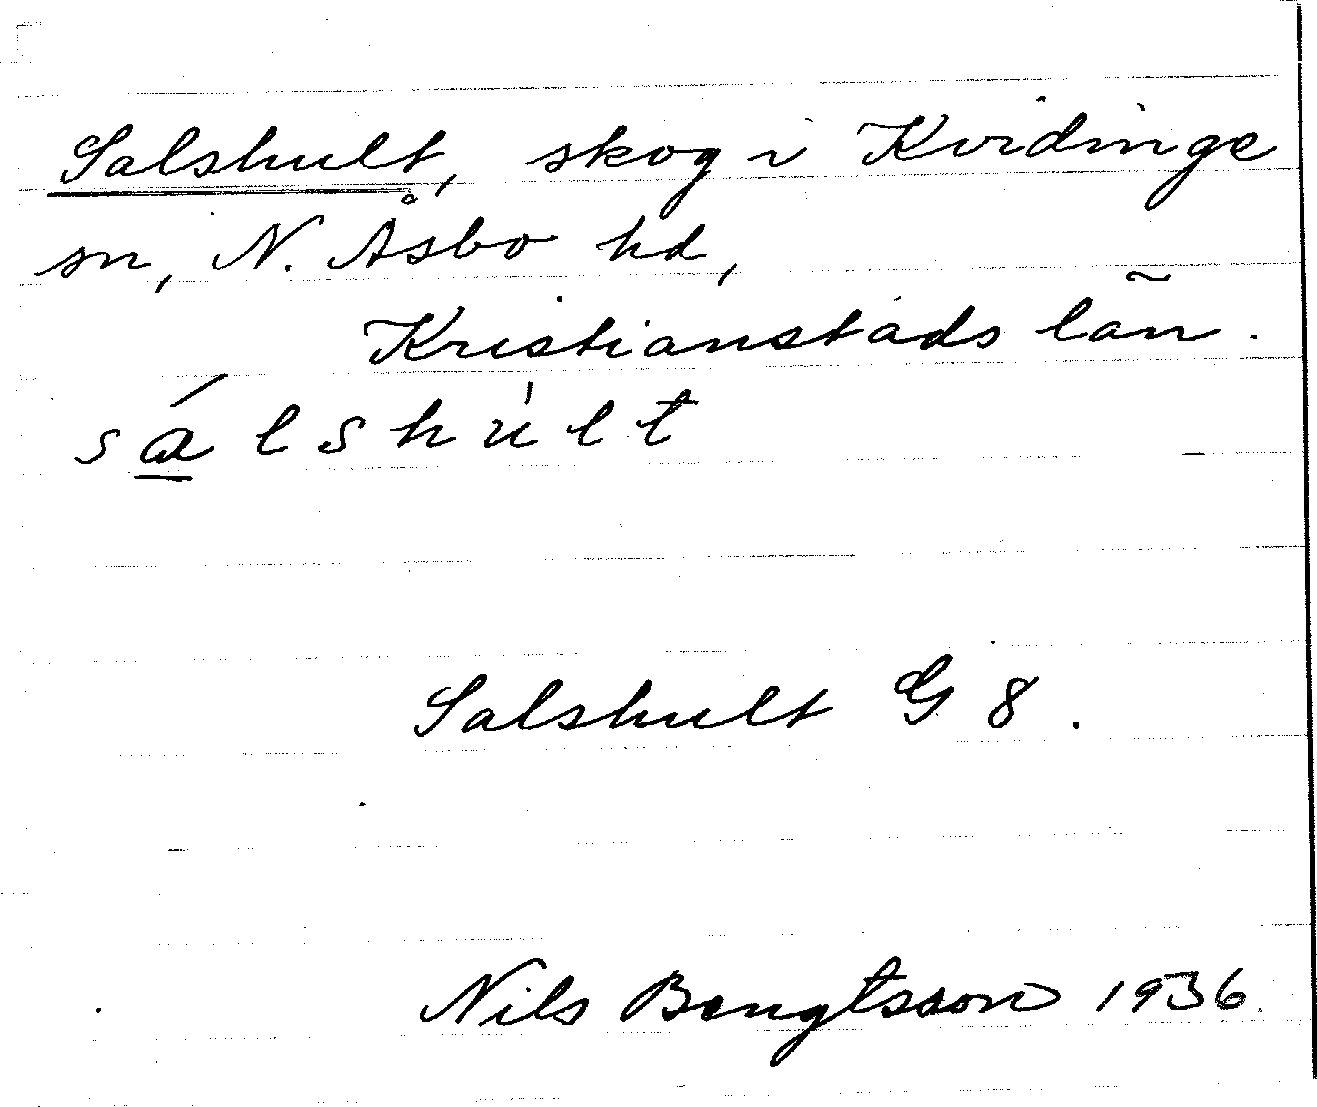 Salshult, skog i Kvidinge
sn, N. Åsbo hd,
Kristianstads län.
sálshu̍lt
Salshult G 8.
Nils Bengtsson 1936.